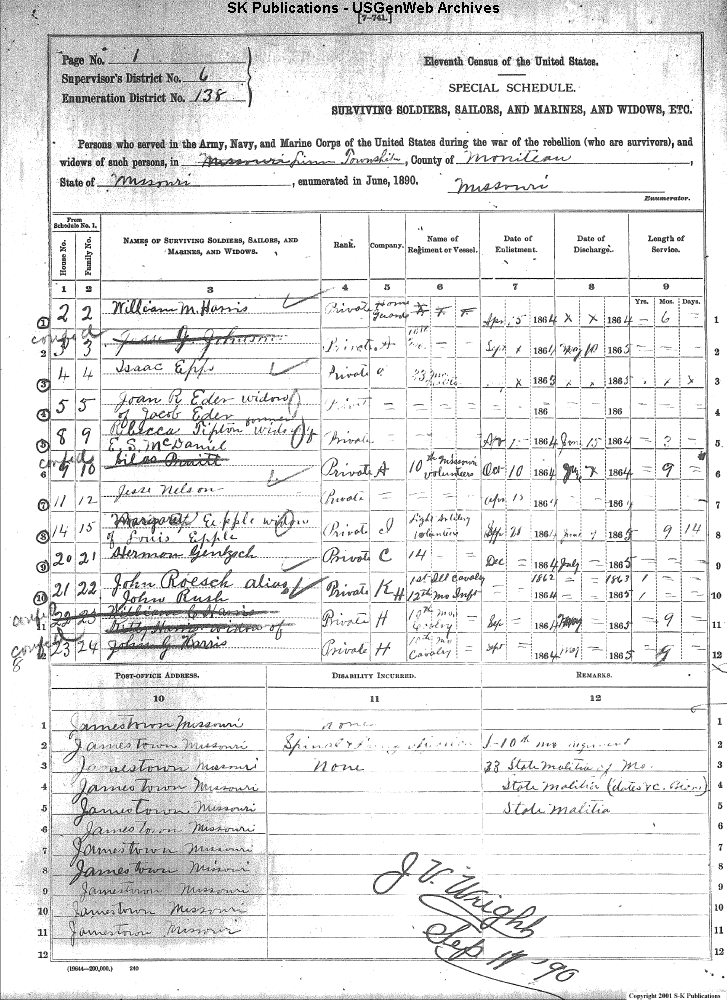 SK Publications - USGenWeb Archives
[7-741.]
Page No. 1
Supervisor's District No. 6
Enumeration District No. 138
Eleventh Census of the United States.
SPECIAL SCHEDULE.
SURVIVING SOLDIERS, SAILORS, AND MARINES, AND WIDOWS, ETC.
Persons who served in the Army, Navy, and Marine Corps of the United States during the war of the rebellion (who are survivors), and
widows of such persons, in Missouri Linn Township, County of Moniteau,
State of Missouri, enumerated in June, 1890. Missouri
Enumerator.
From Schedule No. 1.
House No. Family No. NAMES OF SURVIVING SOLDIERS, SAILORS, AND MARINES, AND WIDOWS. Rank. Company. Name of Regiment or Vessel. Date of Enlistment. Date of Discharge. Length of Service.
1 2 3 4 5 6 7 8 9
Yrs. Mos. Days.
1 2 2 William M. Harris Private Home Guard Apr 5 1864 x x 1864 - 6 1
confed
2 3 3 Jesse G. Johnson Private A 10th Sept x 1861 May 10 1865 2
3 4 4 Isaac Epps Private a 33 mo x 1863 x x 1863 x x 3
4 5 5 Joan R. Eder widow
of Jacob Eder 186 186 4
5 8 9 Rebecca Tipton widow of
E. S. McDaniel Private Apr 1 1864 15 1864 - 3 - 5
confed
6 9 10 Silas Private A 10th Missouri Volunteers Oct 10 1864 1864 - 9 6
7 11 12 Jesse Nelson Private 1864 1864 7
8 14 15 Margaret Epple widow
of Louis Epple Private I Light Artillery Volunteers Sep 20 1864 June 1865 9 14 8
9 20 21 Hermon Gentzsch Private C 14 Dec 1864 July 1865 9
10 21 22 John Roesch alias
John Rush Private K H 1st Ill Cavalry 12th Mo Inft 1862 1864 1863 1865 1 1 10
confed
11 22 23 William C Harris Private H 10th Mo. Cavalry Sep 1864 May 1865 - 9 - 11
Kitty Harris widow of
confed
12 23 24 John G Harris Private H 10th Mo Cavalry Sept 1864 May 1865 - 9 12
8
POST-OFFICE ADDRESS. DISABILITY INCURRED. REMARKS.
10 11 12
1 Jamestown Missouri none 1
2 Jamestown Missouri Spinal & 10th mo regiment 2
3 Jamestown Missouri None 33 State Malitia of Mo. 3
4 Jamestown Missouri State Malitia 4
5 Jamestown Missouri State Malitia 5
6 Jamestown Missouri 6
7 Jamestown Missouri 7
8 Jamestown Missouri 8
9 Jamestown Missouri 9
10 Jamestown Missouri 10
11 Jamestown Missouri 11
12 12
J. V. Wright
Sep 19 '90
(19644-200,000.) 240
Copyright 2001 S-K Publications